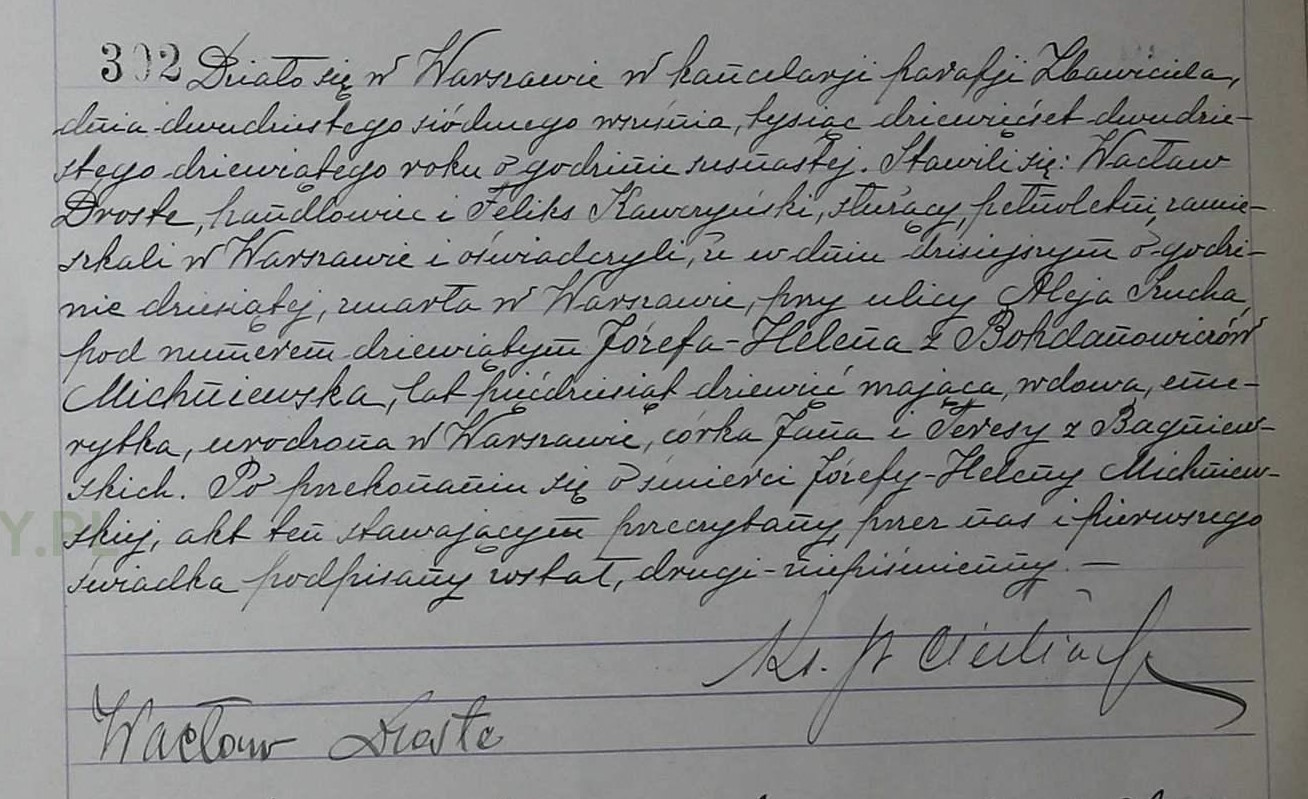 302 Działo się w Warszawie w kancelarji parafji Zbawiciela,
dnia dwudziestego siódmego września, tysiąc dziewięćset dwudzie-
stego dziewiątego roku o godzinie szesnastej. Stawili się: Wacław
Droste, handlowiec i Feliks Kawczyński, służący, pełnoletni, zamie-
szkali w Warszawie i oświadczyli, że w dniu dzisiejszym o godzi-
nie dziesiątej, zmarła w Warszawie, przy ulicy Aleja Szucha
pod numerem dziewiątym Józefa-Helena z Bohdanowiczów
Michniewska, lat pięćdziesiąt dziewięć mająca, wdowa, eme-
rytka, urodzona w Warszawie, córka Jana i Teresy z Bagniew-
skich. Po przekonaniu się o śmierci Józefy-Heleny Michniew-
skiej, akt ten stawającym przeczytany, przez nas i pierwszego
świadka podpisany został, drugi-niepiśmienny. —
Ks. St
Wacław Droste
Y.PL